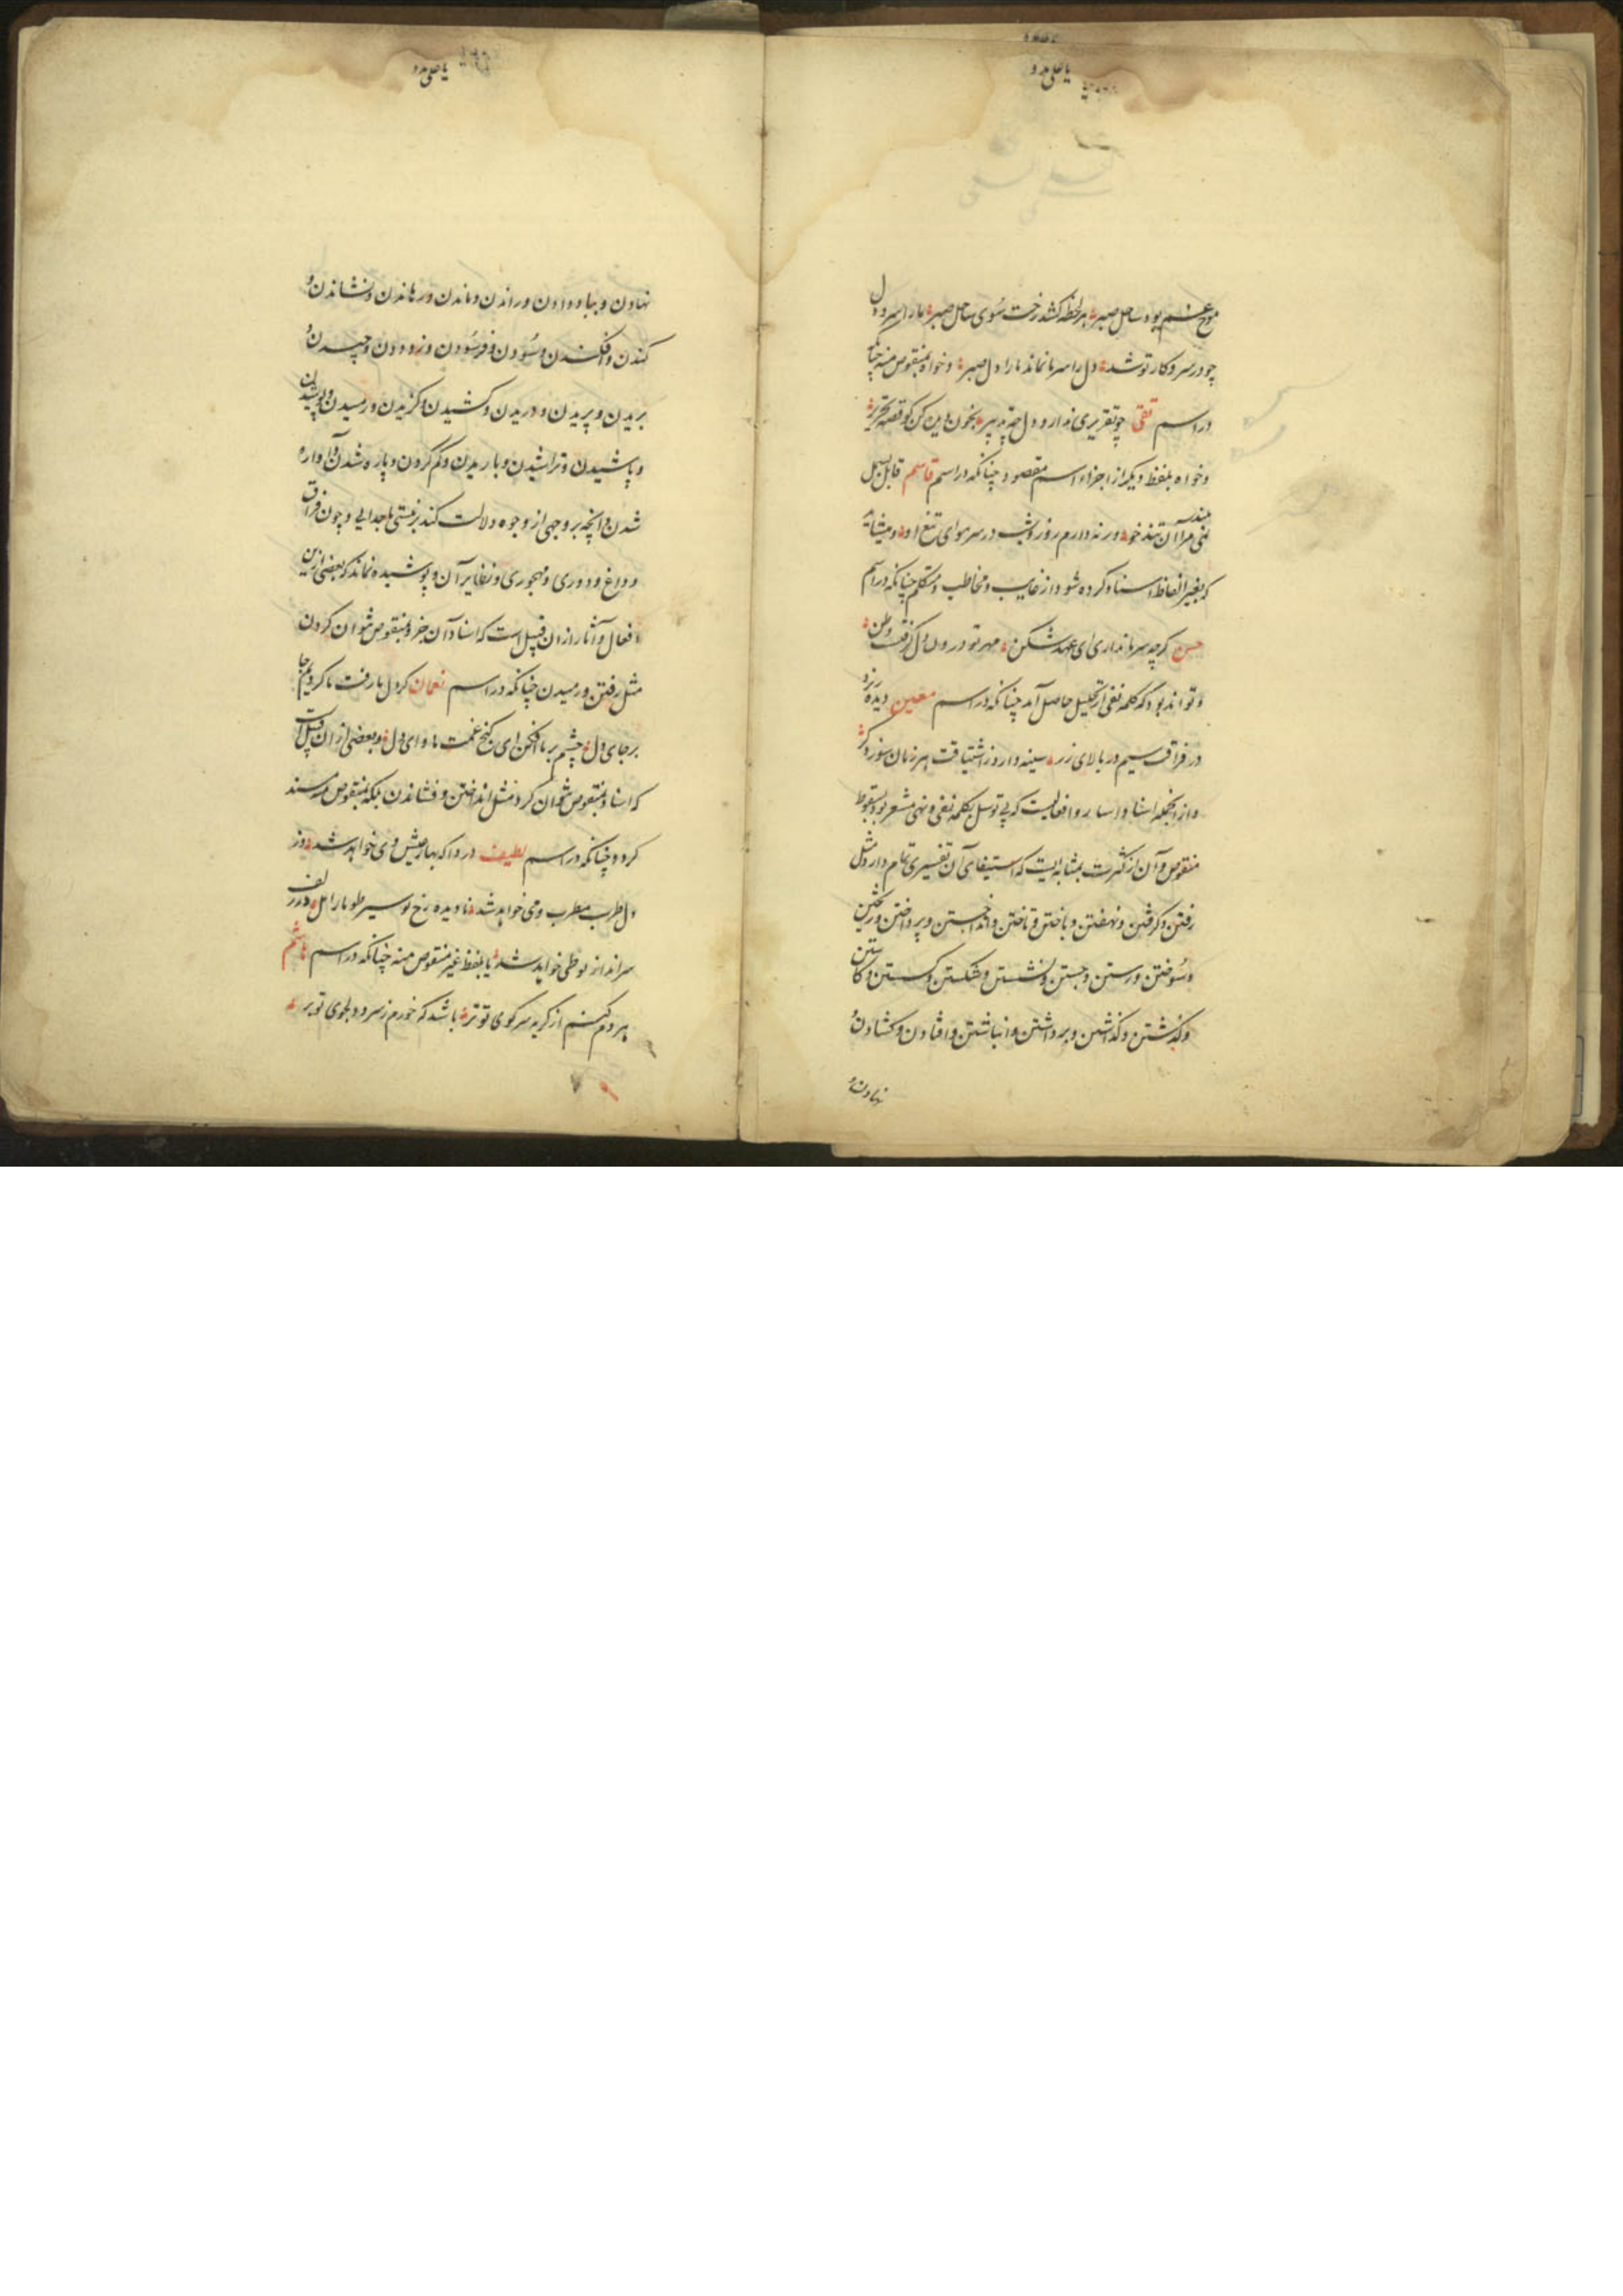 یا علی مدد
موج غم بود ساحل صبر هر لحظه کشد رخت سوی ساحل صبر ما را سر و دل
چو در سر و کار تو شد دل را سر ما نماند ما را دل صبر و خواه بمنقوص منه چنانکه
در اسم تقی چو تقریری ندارد دل چه تدبیر بخون هین کن کو قصه تحریر
و خواه بلفظ دیگر از اجزاء اسم مقصود چنانکه در اسم قاسم قابل بسمل
نمی مرا آن تند خو ورنه دارم روز و شب در سر هوای تیغ او و میشاید
که بغیر الفاظ اسناد کرده شود از غایب و مخاطب و متکلم چنانکه در اسم
حسن کرچه سر ما نداری ای عهد شکن مهر تو درون دل کرفت وطن
و تواند بود که کلمه نفی از تحلیل حاصل آید چنانکه در اسم معین دیده ریزد
در فراقت سیم در بالای زر سینه دارد ز اشتیاقت هر زمان سوز دکر
و از آنجمله اسناد و اسایر و افعالیست که بی توسل بکلمه نفی و نهی مشعر بود بسقوط
منقوص و آن از کثرت بمثابه ایست که استیفای آن تفسیری تمام دارد مثل
رفتن و کرفتن و نهفتن و باختن و تاختن و انداختن و پرداختن و ریختن
و سوختن و رستن و جستن و نشستن و شکستن و کسستن و کاستن
و کذشتن و کذاشتن و برداشتن و انباشتن و افتادن و کشادن و
نهادن و
یا علی مدد
نهادن و بباد دادن و راندن و ماندن و رهاندن و نشاندن و
کندن و افکندن و سودن و فرسودن و زدودن و چیدن و
بریدن و پریدن و دریدن و کشیدن و کزیدن و رمیدن و پوشیدن
و پاشیدن و تراشیدن و باریدن و کم کردن و پاره شدن و آواره
شدن و آنچه بر وجهی از وجوه دلالت کند بر نیستی یا جدایی و چون فراق
و داغ و دوری و مهجوری و نظایر آن و پوشیده نماند که بعضی از این
افعال و آثار از ان قبیل است که اسناد آن جز بمنقوص نتوان کردن
مثل رفتن و رمیدن چنانکه در اسم نعمان کر دل ما رفت ما کردیم جا
بر جای دل چشم بر ما افکن ای کنج غمت ماوای دل و بعضی از ان قبیل است
که اسناد بمنقوص نتوان کرد مثل انداختن و فشاندن بلکه بمنقوص منه مسند
کردد چنانکه در اسم لطیف دردا که بهار عیش وی خواهد شد وز
دل طرب مطرب و می خواهد شد نادیده رخ تو سیر طومار امل در زلف
سرانداز تو طی خواهد شد یا بلفظ غیر منقوص منه چنانکه در اسم هاشم
هر دم کنم از کریه سر کوی تو تر باشد که خورم ز سرو دلجوی تو بر